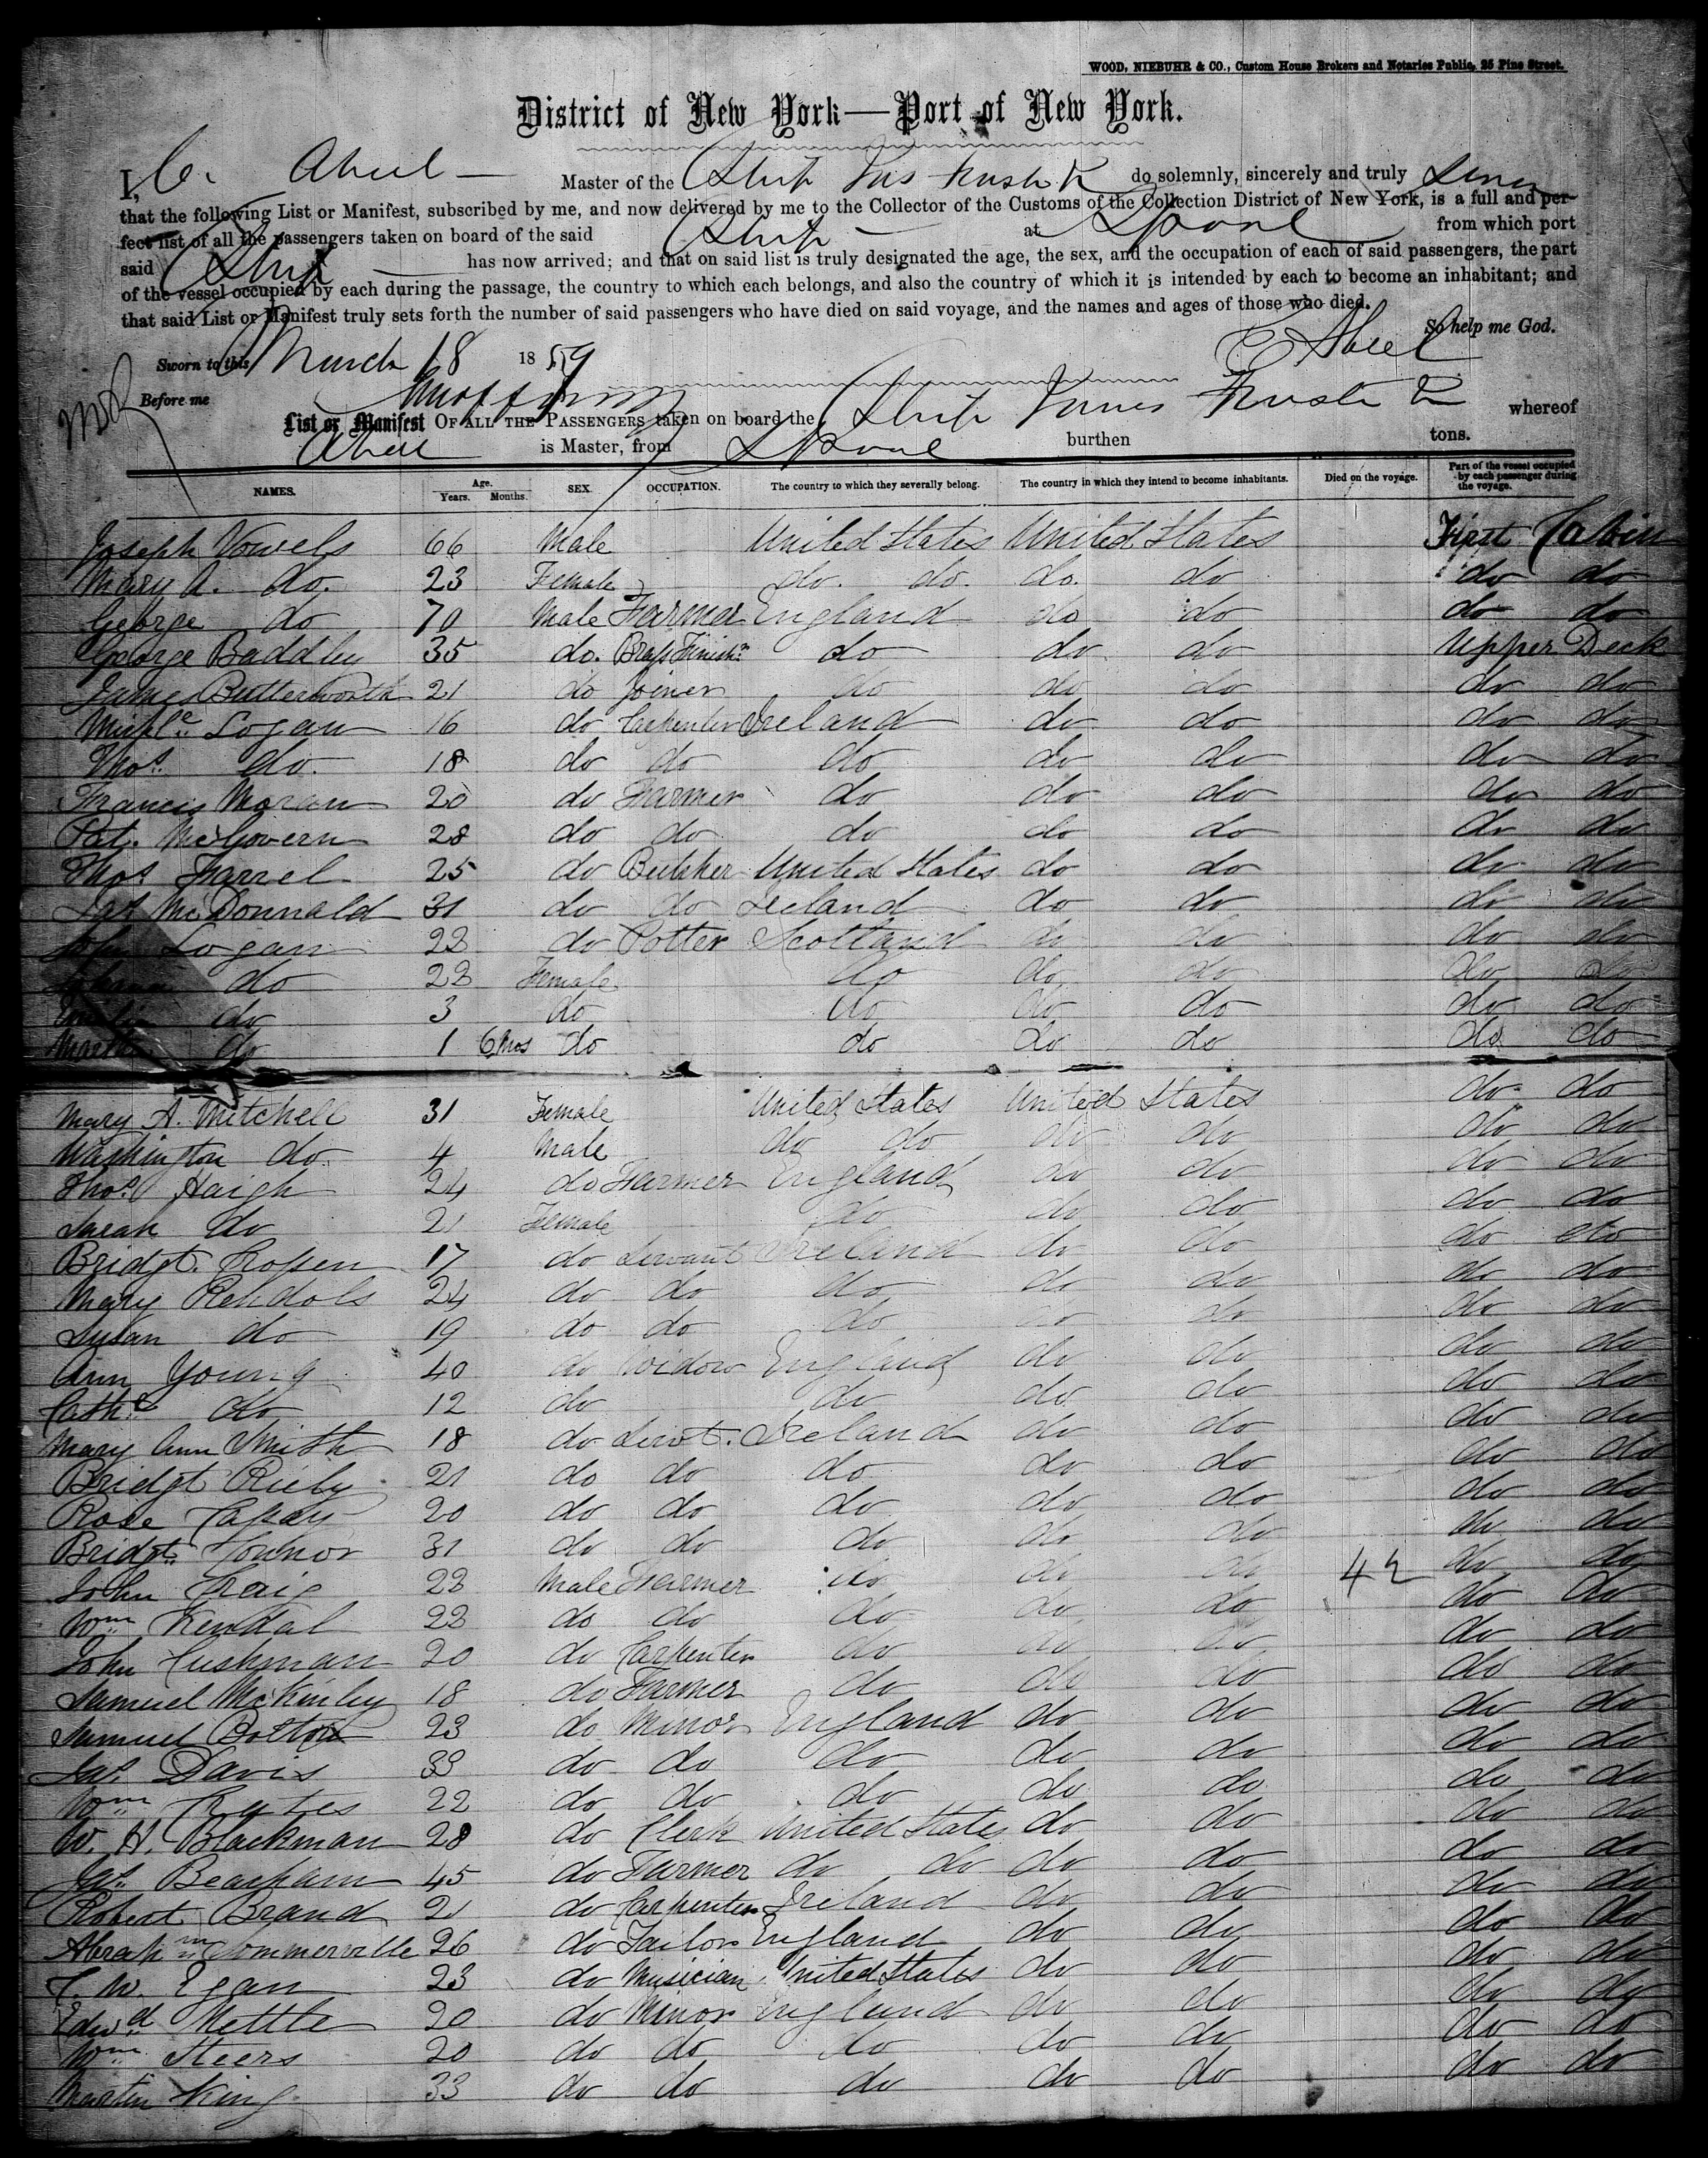 WOOD, NIEBUHR & CO., Custom House Brokers and Notaries Public, 25 Pine Street.
District of New York—Port of New York.
I, C. Abeel — Master of the Ship Jas Foster Jr do solemnly, sincerely and truly swear
that the following List or Manifest, subscribed by me, and now delivered by me to the Collector of the Customs of the Collection District of New York, is a full and per-
fect list of all the passengers taken on board of the said Ship — at Lpool from which port
said Ship has now arrived; and that on said list is truly designated the age, the sex, and the occupation of each of said passengers, the part
of the vessel occupied by each during the passage, the country to which each belongs, and also the country of which it is intended by each to become an inhabitant; and
that said List or Manifest truly sets forth the number of said passengers who have died on said voyage, and the names and ages of those who died.
So help me God.
Sworn to this March 18 1859 C Abeel
Before me
List or Manifest OF ALL THE PASSENGERS taken on board the Ship James Foster Jr whereof
Abeel is Master, from Lpool burthen tons.
NAMES. Age. Years. Months. SEX. OCCUPATION. The country to which they severally belong. The country in which they intend to become inhabitants. Died on the voyage. Part of the vessel occupied by each passenger during the voyage.
Joseph Vowels 66 Male United States United States First Cabin
Mary A. do. 23 Female do. do. do. do do do
George do 70 Male Farmer England do do do do
George Baddley 35 do. Brass Finishr do do do Upper Deck
James Butterworth 21 do Joiner do do do do do
Michle Logan 16 do Carpenter Ireland do do do do
Thos do. 18 do do do do do do do
Francis Moran 20 do Farmer do do do do do
Pat. McGovern 28 do do do do do do do
Thos Farrel 25 do Butcher United States do do do do
Jas McDonnald 31 do do Ireland do do do do
John Logan 22 do Potter Scotland do do do do
do 22 Female do do do do do
do 3 do do do do do do
Martha do 1 6 Mos do do do do do do
Mary A. Mitchell 31 Female United States United States do do
Washington do. 4 Male do do do do do do
Thos Haigh 24 do Farmer England do do do do
Sarah do 21 Female do do do do do
Bridgt. 17 do Servant Ireland do do do do
Mary Rehdols 24 do do do do do do do
Susan do 19 do do do do do do do
Ann Young 40 do Widow England do do do do
Cathe do 12 do do do do do do
Mary Ann Smith 18 do Servt. Ireland do do do do
Bridgt Riely 21 do do do do do do do
Rose 20 do do do do do do do
Bridgt. Connor 31 do do do do do do do
John Craig 22 Male Farmer do do do 42 do do
Wm Kendal 22 do do do do do do do
John Cushman 20 do Carpenter do do do do do
Samuel McKinley 18 do Farmer do do do do do
Samuel Bolton 23 do Minor England do do do do
Jas. Davis 33 do do do do do do do
Wm 22 do do do do do do do
W. H. Blackman 28 do Clerk United States do do do do
Jas. Beacham 45 do Farmer do do do do do do
Robert Brand 21 do Carpenter Ireland do do do do
Abrahm Sommerville 26 do Tailor England do do do do
T. W. Egan 23 do Musician United States do do do do
Edwd Mettle 20 do Minor England do do do do
Wm Steers 20 do do do do do do do
Martin King 33 do do do do do do do